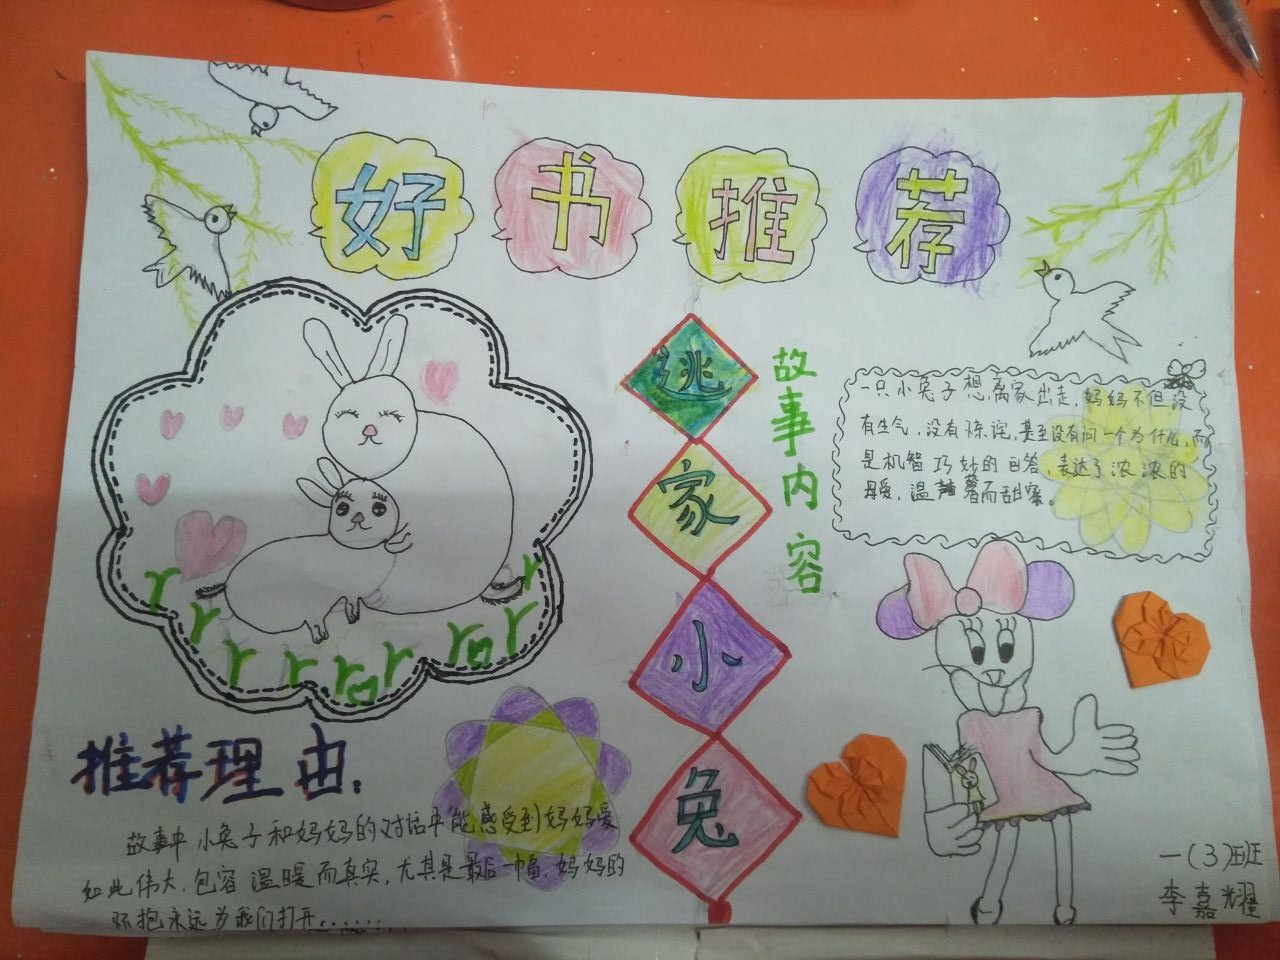 好书推荐
逃家小兔
故事内容
一只小兔子想离家出走,妈妈不但没
有生气,没有炼诧,甚至没有问一个为什么,而
是机智巧妙的回答,表达了浓浓的
母爱,温馨而甜蜜。
推荐理由:
故事中小兔子和妈妈的对话中能感受到妈妈爱
如此伟大.包容温暖而真实,尤其是最后一幅,妈妈的
怀抱永远为我们打开......
一(3)班
李嘉耀